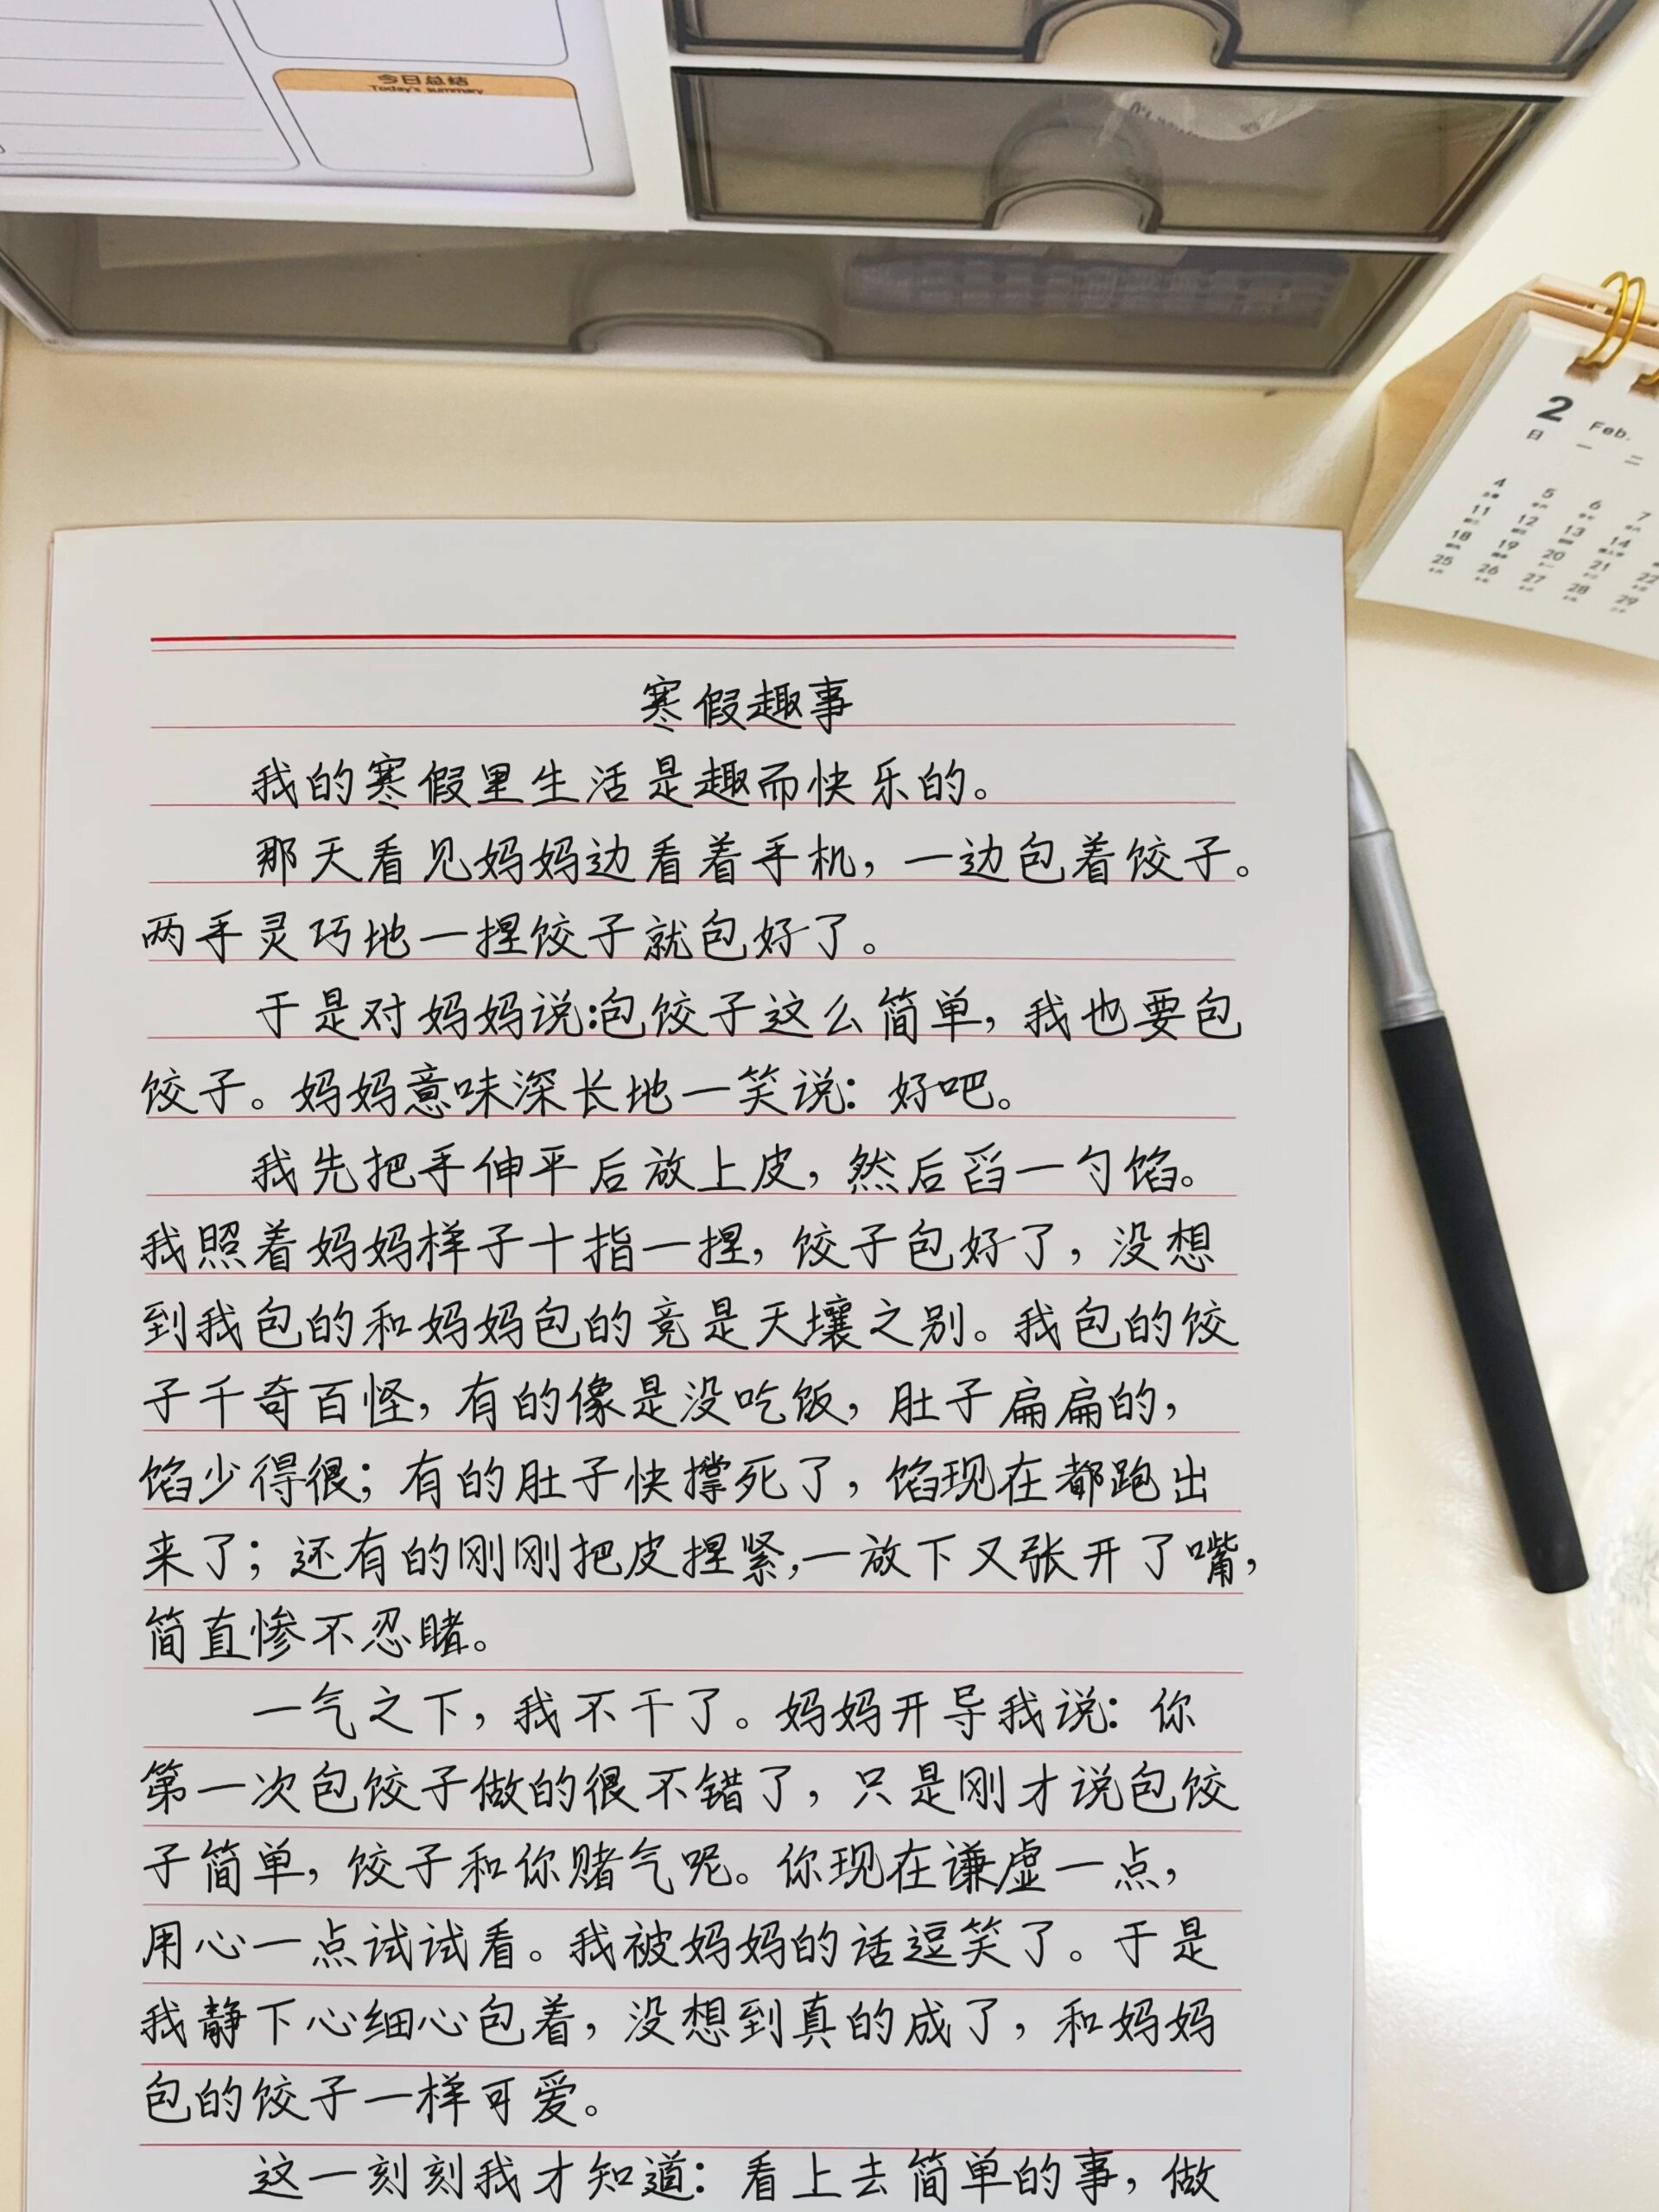 今日总结
Today's summary
2 Feb.
日 一 二
4 5 6 7
11 12 13 14
18 19 20 21 22
25 26 27 28 29
寒假趣事
我的寒假里生活是趣而快乐的。
那天看见妈妈边看着手机，一边包着饺子。
两手灵巧地一捏饺子就包好了。
于是对妈妈说:包饺子这么简单，我也要包
饺子。妈妈意味深长地一笑说：好吧。
我先把手伸平后放上皮，然后舀一勺馅。
我照着妈妈样子十指一捏，饺子包好了，没想
到我包的和妈妈包的竟是天壤之别。我包的饺
子千奇百怪，有的像是没吃饭，肚子扁扁的，
馅少得很；有的肚子快撑死了，馅现在都跑出
来了；还有的刚刚把皮捏紧，一放下又张开了嘴，
简直惨不忍睹。
一气之下，我不干了。妈妈开导我说：你
第一次包饺子做的很不错了，只是刚才说包饺
子简单，饺子和你赌气呢。你现在谦虚一点，
用心一点试试看。我被妈妈的话逗笑了。于是
我静下心细心包着，没想到真的成了，和妈妈
包的饺子一样可爱。
这一刻刻我才知道：看上去简单的事，做